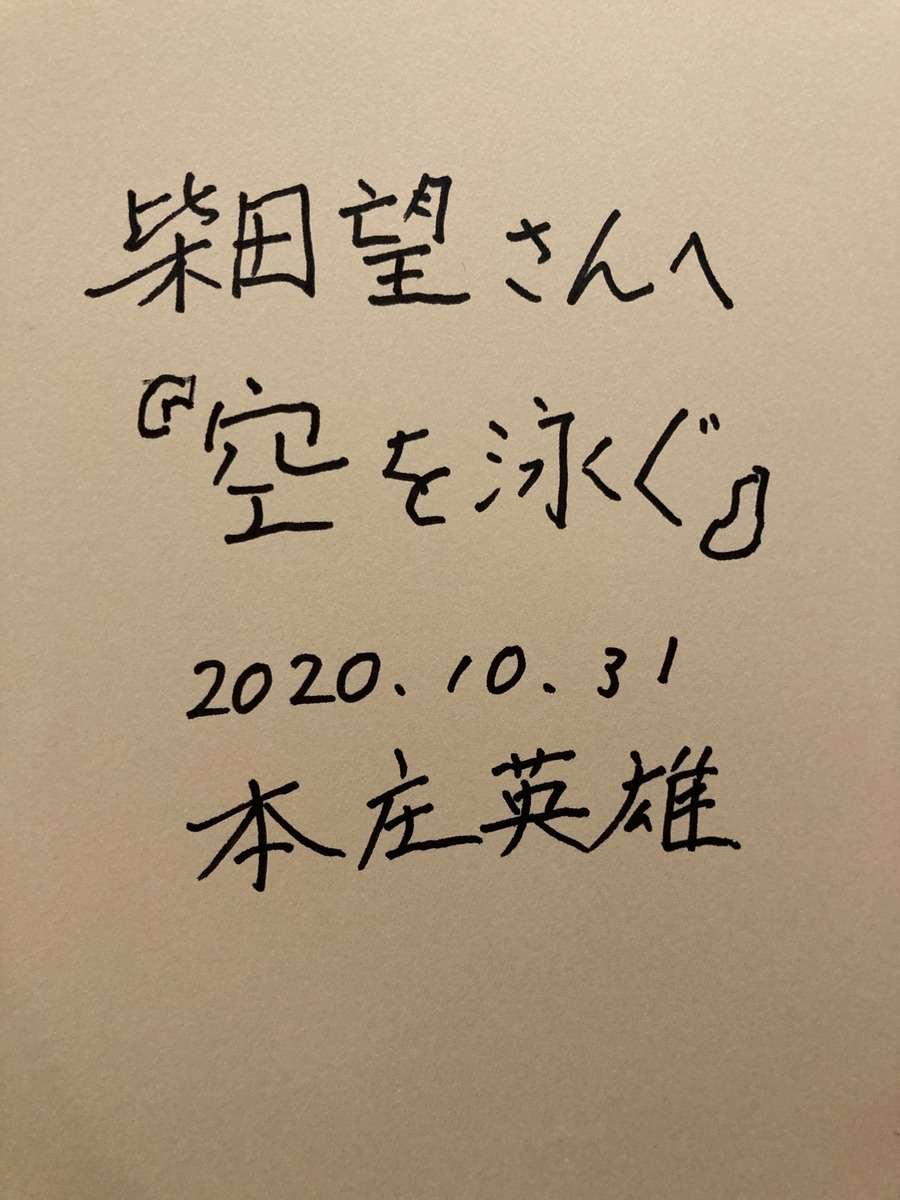 柴田望さんへ
『空を泳ぐ』
2020.10.31
本庄英雄